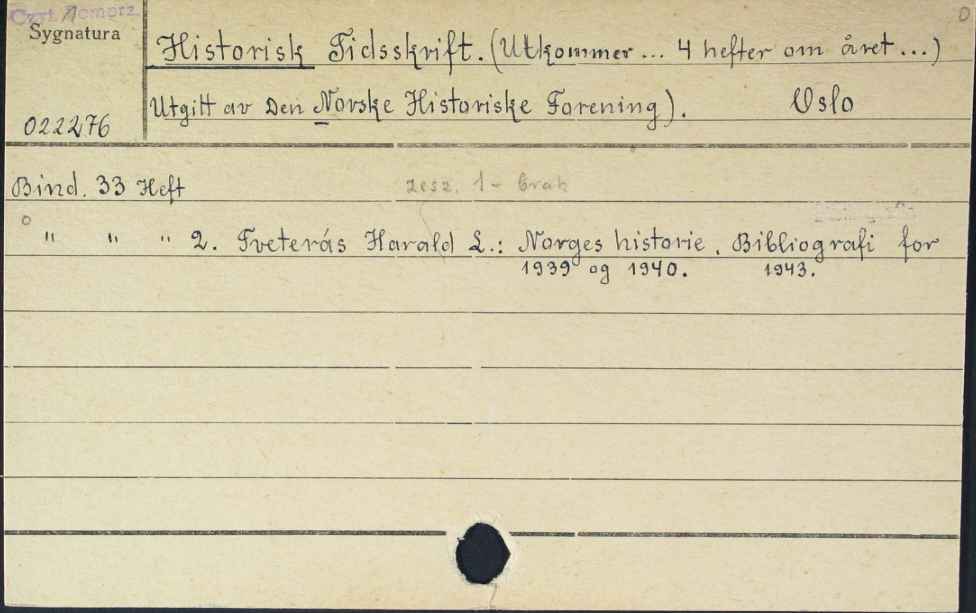 Czyt. Pomorz.
Sygnatura
022276
Historisk Tidsskrift. (Utkommer ... 4 hefter om året ...)
Utgitt av Den Norske Historiske Forening). Oslo
Bind. 33 Heft zesz. 1 - brak
" " " 2. Tveterás Harald L.: Norges historie. Bibliografi for
1939 og 1940. 1943.